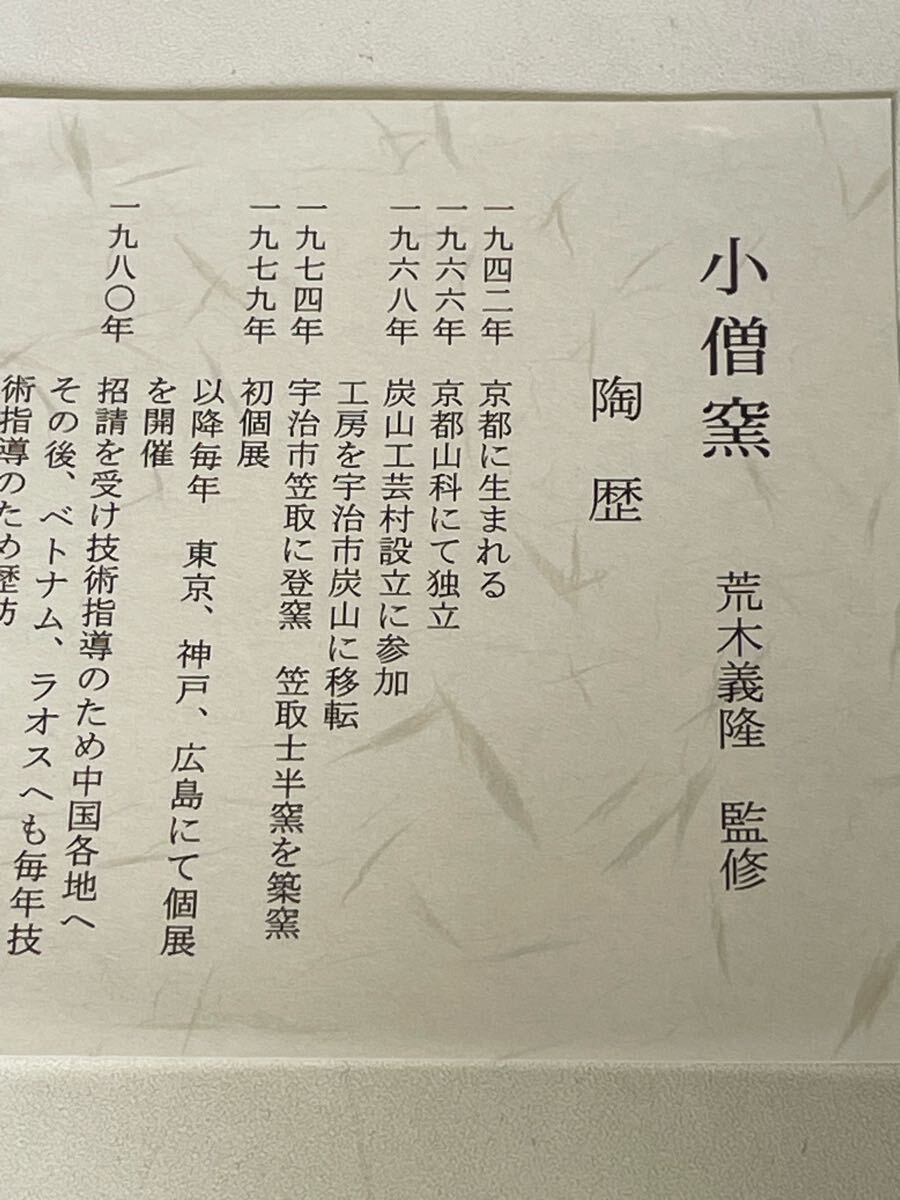 小僧窯　荒木義隆　監修
陶歴
一九四二年　京都に生まれる
一九六六年　京都山科にて独立
一九六八年　炭山工芸村設立に参加
工房を宇治市炭山に移転
一九七四年　宇治市笠取に登窯　笠取士半窯を築窯
一九七九年　初個展
以降毎年　東京、神戸、広島にて個展
を開催
一九八〇年　招請を受け技術指導のため中国各地へ
その後、ベトナム、ラオスへも毎年技
術指導のため歴訪